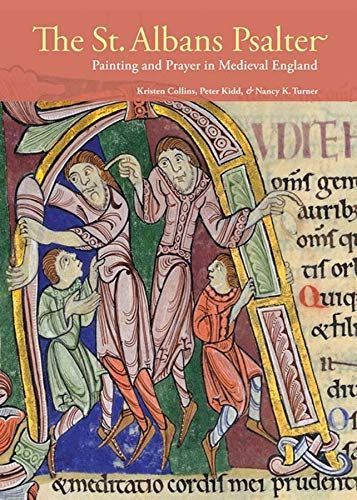 The St. Albans Psalter
Painting and Prayer in Medieval England
Kristen Collins, Peter Kidd, & Nancy K. Turner
oms gen
aurib
oms q
tis orb
Quiq
& filii
& meditatio cordis mei prudenti